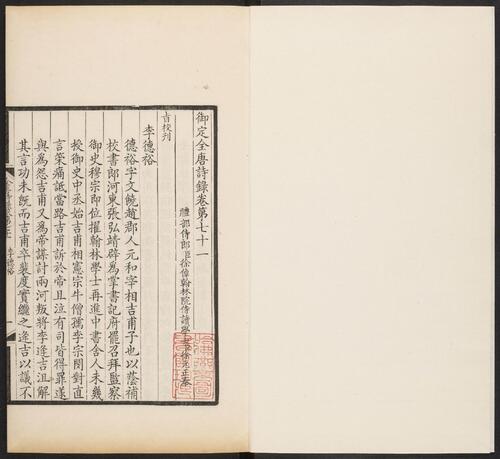 御定全唐詩錄卷第七十一
禮部侍郎臣徐倬翰林院侍讀學士臣徐元正奉
旨校刊
李德裕
德裕字文饒趙郡人元和宰相吉甫子也以蔭補
校書郎河東張弘靖辟為掌書記府罷召拜監察
御史穆宗即位擢翰林學士再進中書舍人未幾
授御史中丞始吉甫相憲宗牛僧孺李宗閔對直
言策痛詆當路吉甫訴於帝且泣有司皆得罪遂
與為怨吉甫又為帝謀討兩河叛將李逢吉沮解
其言功未既而吉甫卒裴度實繼之逢吉以議不
李德裕